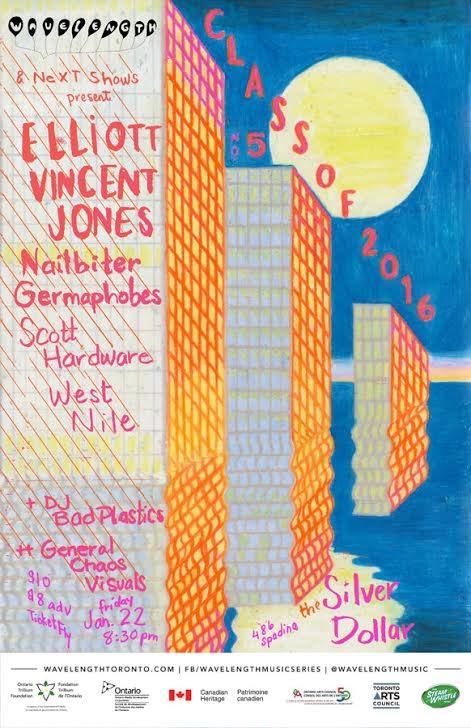 WAVELENGTH
& NeXT Shows
present
ELLIOTT
VINCENT
JONES
Nailbiter
Germaphobes
Scott
Hardware
West
Nile
+ DJ
BadPlastics
++ General
Chaos
Visuals
$10
$8 adv
Ticketfly
friday
Jan. 22
8:30 pm
CLASS OF 2016
NO 5
the Silver
Dollar
486
spadina
WAVELENGTHTORONTO.COM | FB/WAVELENGTHMUSICSERIES | @WAVELENGTHMUSIC
Ontario
Trillium
Foundation
Fondation
Trillium
de l'Ontario
Ontario
Canadian
Heritage
Patrimoine
canadien
ONTARIO ARTS COUNCIL
CONSEIL DES ARTS DE L'ONTARIO
TORONTO
ARTS
COUNCIL
STEAM
WHISTLE